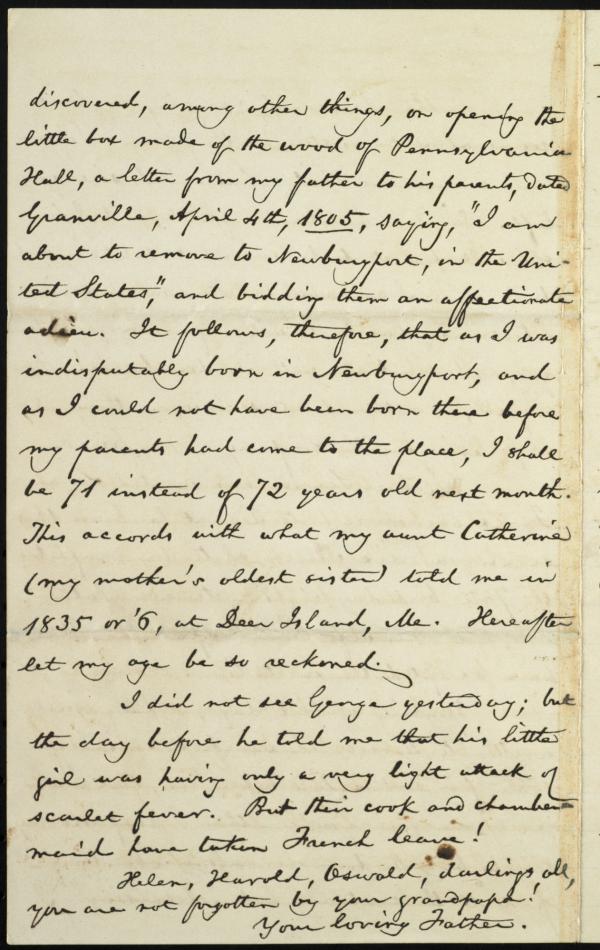 discovered, among other things, on opening the
little box made of the wood of Pennsylvania
Hall, a letter from my father to his parents, dated
Granville, April 4th, 1805, saying, "I am
about to remove to Newburyport, in the Uni-
ted States," and bidding them an affectionate
adieu. It follows, therefore, that as I was
indisputably born in Newburyport, and
as I could not have been born there before
my parents had come to the place, I shall
be 71 instead of 72 years old next month.
This accords with what my aunt Catherine
(my mother's oldest sister) told me in
1835 or '6, at Deer Island, Me. Hereafter
let my age be so reckoned.
I did not see George yesterday; but
the day before he told me that his little
girl was having only a very light attack of
scarlet fever. But their cook and chamber-
maid have taken French leave!
Helen, Harold, Oswald, darlings all,
you are not forgotten by your grandpapa!
Your loving Father.